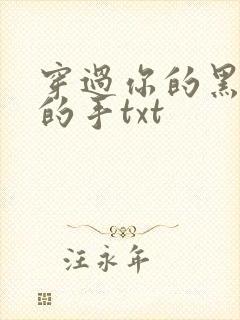 穿過你的黑
的手txt
汪永年